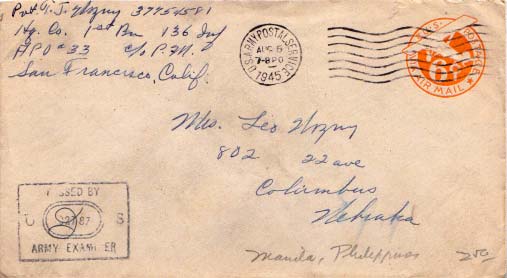 Pvt. G. J. Wozny 37754581
Hq. Co. 1st Bn 136 Inf
APO # 33 c/o P.M.
San Francisco, Calif.
U.S. ARMY POSTAL SERVICE
AUG 5
7-8 PO
1945
AIR MAIL
Mrs. Leo Wozny
802 22 ave
Columbus
Nebraska
PASSED BY
U S
ARMY EXAMINER
Manila, Philippines